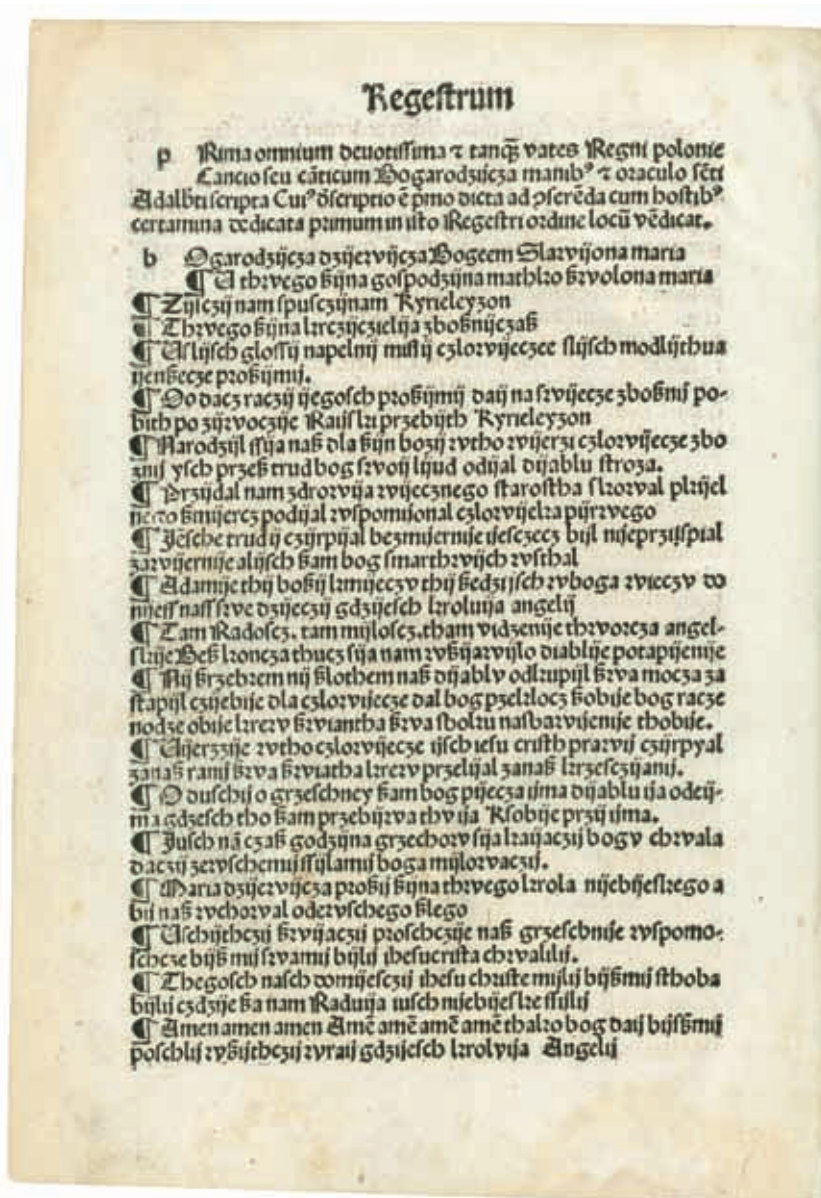 Regestrum
p Rima omnium deuotissima ⁊ tanqȝ vates Regni polonie
Cancio seu cāticum Bogarodzijcza manibꝰ ⁊ oraculo sc̄ti
Adalb̄ti scripta Cuiꝰ d̄scriptio ē p̄mo dicta ad ꝯserēda cum hostibꝰ
certamina dedicata primum in isto Regestri ordine locū vēdicat.
b Ogarodzijcza dzijerwijcza Bogeem Slarvijona maria
¶ U thwego ßijna gospodzijna mathko ßrvolona maria
¶ Zijsczij nam spusczijnam Kyrieleyzon
¶ Thwego ßijna krczijczielija zboßnijczaß
¶ Uslijsch glossij napelnij mislij czlowijeczee slijsch modlijthua
ijenßecze proßijmij.
¶ Do dacz raczij ijegosch proßijmij daij na swijecze zboßnij po-
bith po zijwoczije Raijski przebijth Kyrieleyzon
¶ Narodzijl ssija naß dla ßijn bozij wtho wijerzi czlowijecze zbo
znij ysch przeß trud bog swoij lijud odijal dijablu stroza.
¶ Przijdal nam zdrowija wijecznego starostha skowal pkijel
nego ßmijercz podijal wspomijonal czlowijeka pijrwego
¶ Jescze trudij czijrpijal bezmijernije ijesczecz bijl nijeprzijspial
zawijernije alijsch ßam bog smarthwijch wsthal
¶ Adamije thij boßij kmijeczv thij ßedzijsch wboga wieczv do
nijess nass swe dzijeczij gdzijesch kroluija angelij
¶ Tam Radoscz. tam mijloscz. tham vidzenije thworcza angel-
skije Beß koncza thucz sija nam wßijawijlo diablije potapijenije
¶ Nij ßrzebrem nij ßlothem naß dijablv odkupijl ßwa mocza za
stapijl czijebije dla czlowijecze dal bog przeklocz ßobije bog racze
nodze obije krew ßwiantha ßwa sbolku nasbawijenije thobije.
¶ Uijerzzije wtho czlowijecze ijsch iesu cristh prawij czijrpyal
zanaß ranij ßwa ßwiatha krew przelijal zanaß krzesczijanij.
¶ O duschij o grzeschney ßam bog pijecza ijma dijablu ija odeij-
ma gdzesch tho ßam przebijwa thv ija Ksobije przij ijma.
¶ Jusch nā czaß godzijna grzechow sija kaijaczij bogv chwala
daczij zewschemij ssijlamij boga mijlowaczij.
¶ Maria dzijewijcza proßij ßijna thwego krola nijebijeskego a
bij naß wchowal odewschego ßlego
¶ Uschijthczij ßwijaczij proschczije naß grzeschnije wspomo-
schcze bijß mij swamij bijlij ihesucrista chwalilij.
¶ Thegosch nasch domijesczij ihesu christe mijlij bijßmij sthoba
bijlij czdzije ßa nam Raduija iusch niebijeske ssijlij
¶ Amen amen amen Amē amē amē amē thako bog daij bijsßmij
poschlij wßijthczij wraij gdzijesch krolvija Angelij